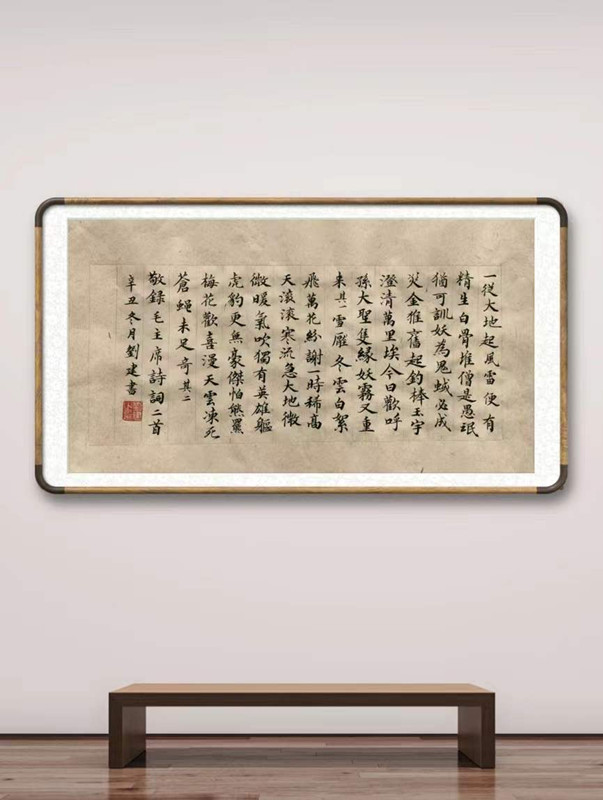 一從大地起風雷便有
精生白骨堆僧是愚珉
猶可訓妖為鬼蜮必成
災金猴奮起鈞棒玉宇
澄清萬里埃今日歡呼
孫大聖隻緣妖霧又重
来其一雪壓冬雲白絮
飛萬花紛謝一時稀高
天滾滾寒流急大地微
微暖氣吹獨有英雄驅
虎豹更無豪傑怕熊羆
梅花歡喜漫天雲凍死
蒼蠅未足奇其二
敬録毛主席詩詞二首
辛丑冬月劉建書